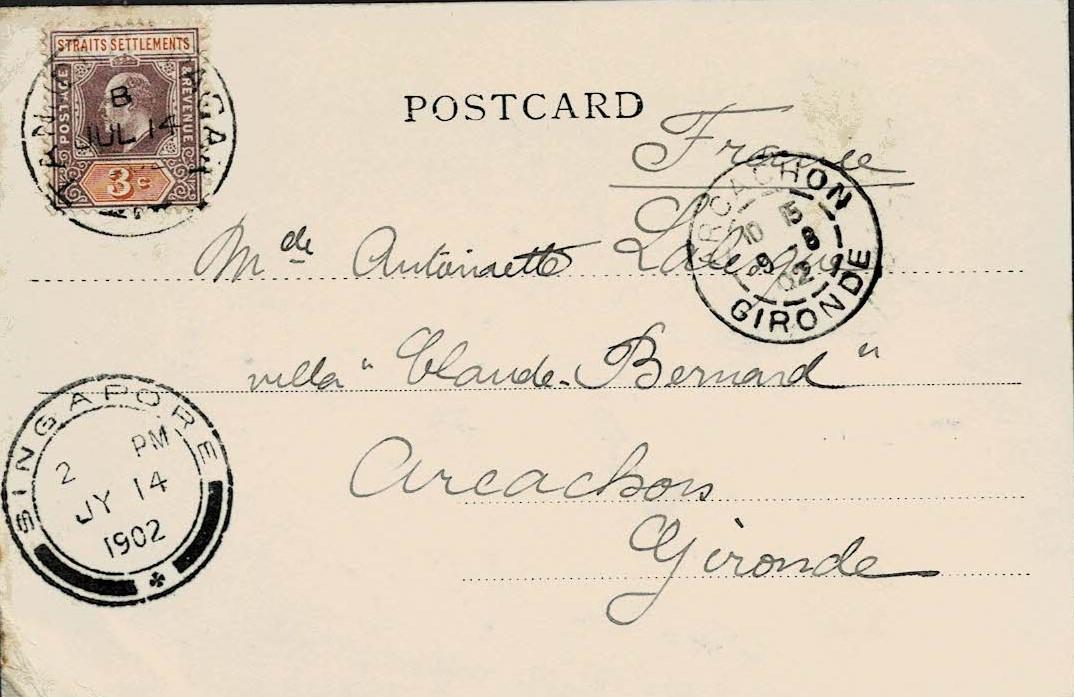 STRAITS SETTLEMENTS
POSTAGE & REVENUE
B
JUL 14
3c
POSTCARD
France
ARCACHON
10 15
9 -8
02
GIRONDE
Mde Antoinette
villa "Claude-Bernard"
Arcachon
Gironde
SINGAPORE
2 PM
JY 14
1902